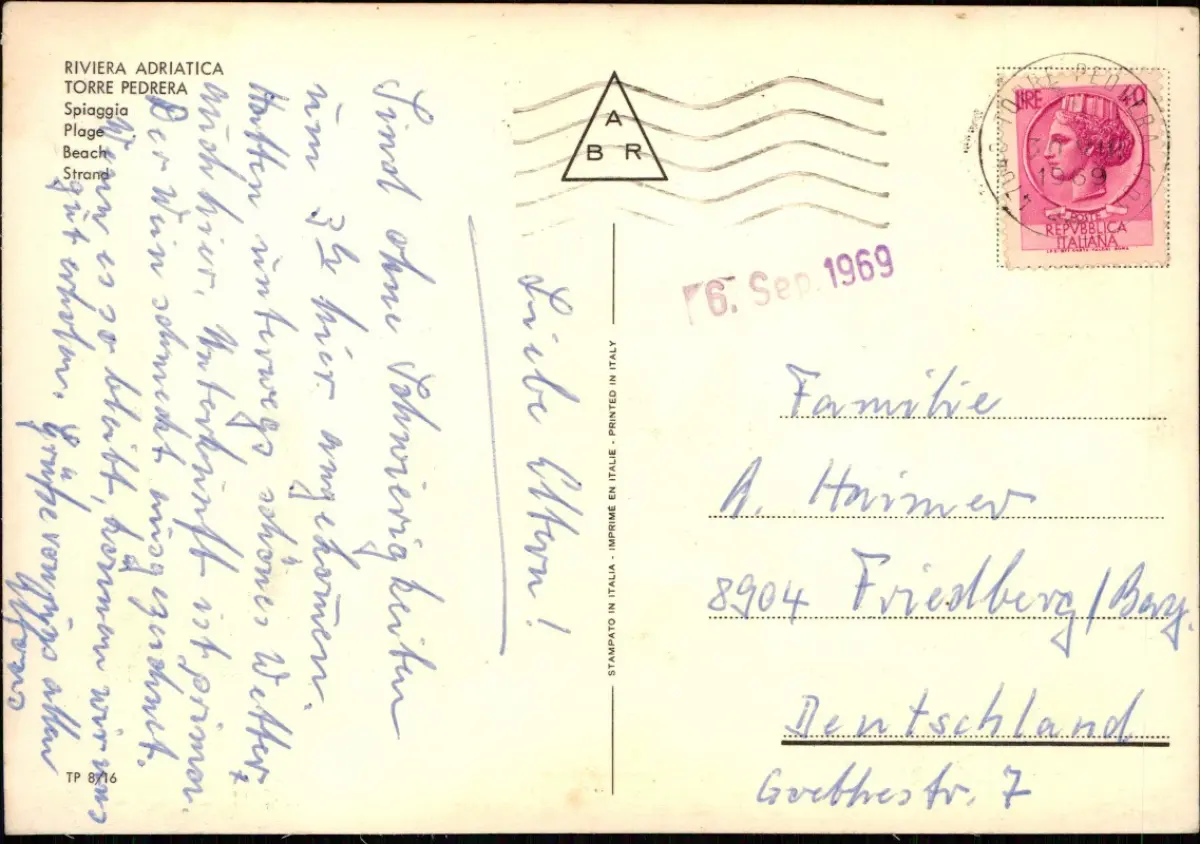 RIVIERA ADRIATICA
TORRE PEDRERA
Spiaggia
Plage
Beach
Strand
Liebe Eltern!
Sind ohne Schwierigkeiten
um 3h hier angekom̄en.
Hatten unterwegs schönes Wetter,
auch hier. Unterkunft ist prima.
Der Wein schmeckt ausgezeichnet.
Wenn es so bleibt, können wir uns
gut erholen. Grüße von uns allen
TP 8/16
STAMPATO IN ITALIA - IMPRIMÉ EN ITALIE - PRINTED IN ITALY
A
B R
LIRE 40
POSTE
REPVBBLICA
ITALIANA
47040 TORRE PEDRERA
1969
6. Sep. 1969
Familie
A. Haimer
8904 Friedberg/Bay.
Deutschland
Goethestr. 7